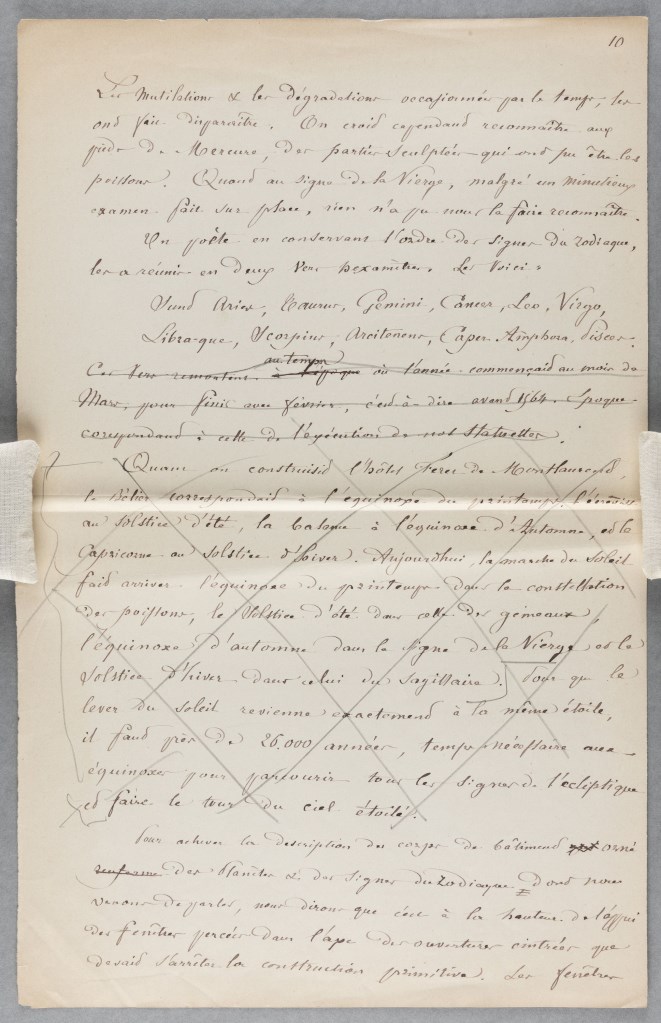 10
Les Mutilations & les Dégradations occasionnées par le temps, les
ont fait disparaître. On croid cependand reconnaître aux
pieds de Mercure, des parties sculptées qui ont pu être les
poissons. Quand au signe de la Vierge, malgré un minutieux
examen fait sur place, rien n'a pu nous la faire reconnaître.
Un poëte en conservant l'ordre des signes du Zodiaque,
les a réunis en deux Vers hexamètres. Les Voici :
Sund Aries, Taurus, Gemini, Cancer, Leo, Virgo,
Libra-que, Scorpius, Arcitenens, Caper Amphora, Pisces.
au temps
Ces Vers remontent à l'époque où l'année commençaid au mois de
Mars, pour finir avec février, c'est à dire avand 1564. Epoque
corespondand à celle de l'exécution de nos statuettes.
Quand on construisid l'hôtel Ferer de Montlaur
le Bélier correspondaid à l'équinoxe du printemps, l'écrevisse
au solstice d'été, la balance à l'équinoxe d'Automne, et le
Capricorne au solstice d'hiver. Aujourdhui, la marche du soleil
faid arriver l'équinoxe du printemps dans la constellation
des poissons, le solstice d'été dans celle des gémeaux,
l'équinoxe d'automne dans le signe de la Vierge et le
solstice d'hiver dans celui du sagittaire. Pour que le
lever du soleil revienne exactemend à la même étoile,
il faud près de 26.000 années, temps nécessaire aux
équinoxes pour parcourir tous les signes de l'écliptique
et faire le tour du ciel étoilé.
Pour achever la description des corps de bâtimend orné
renferme des Planètes & des signes du Zodiaque dont nous
venons de parler, nous dirons que c'est à la hauteur de l'appui
des fenêtres percées dans l'axe des ouvertures cintrées que
devaid s'arrêter la construction primitive. Les fenêtres